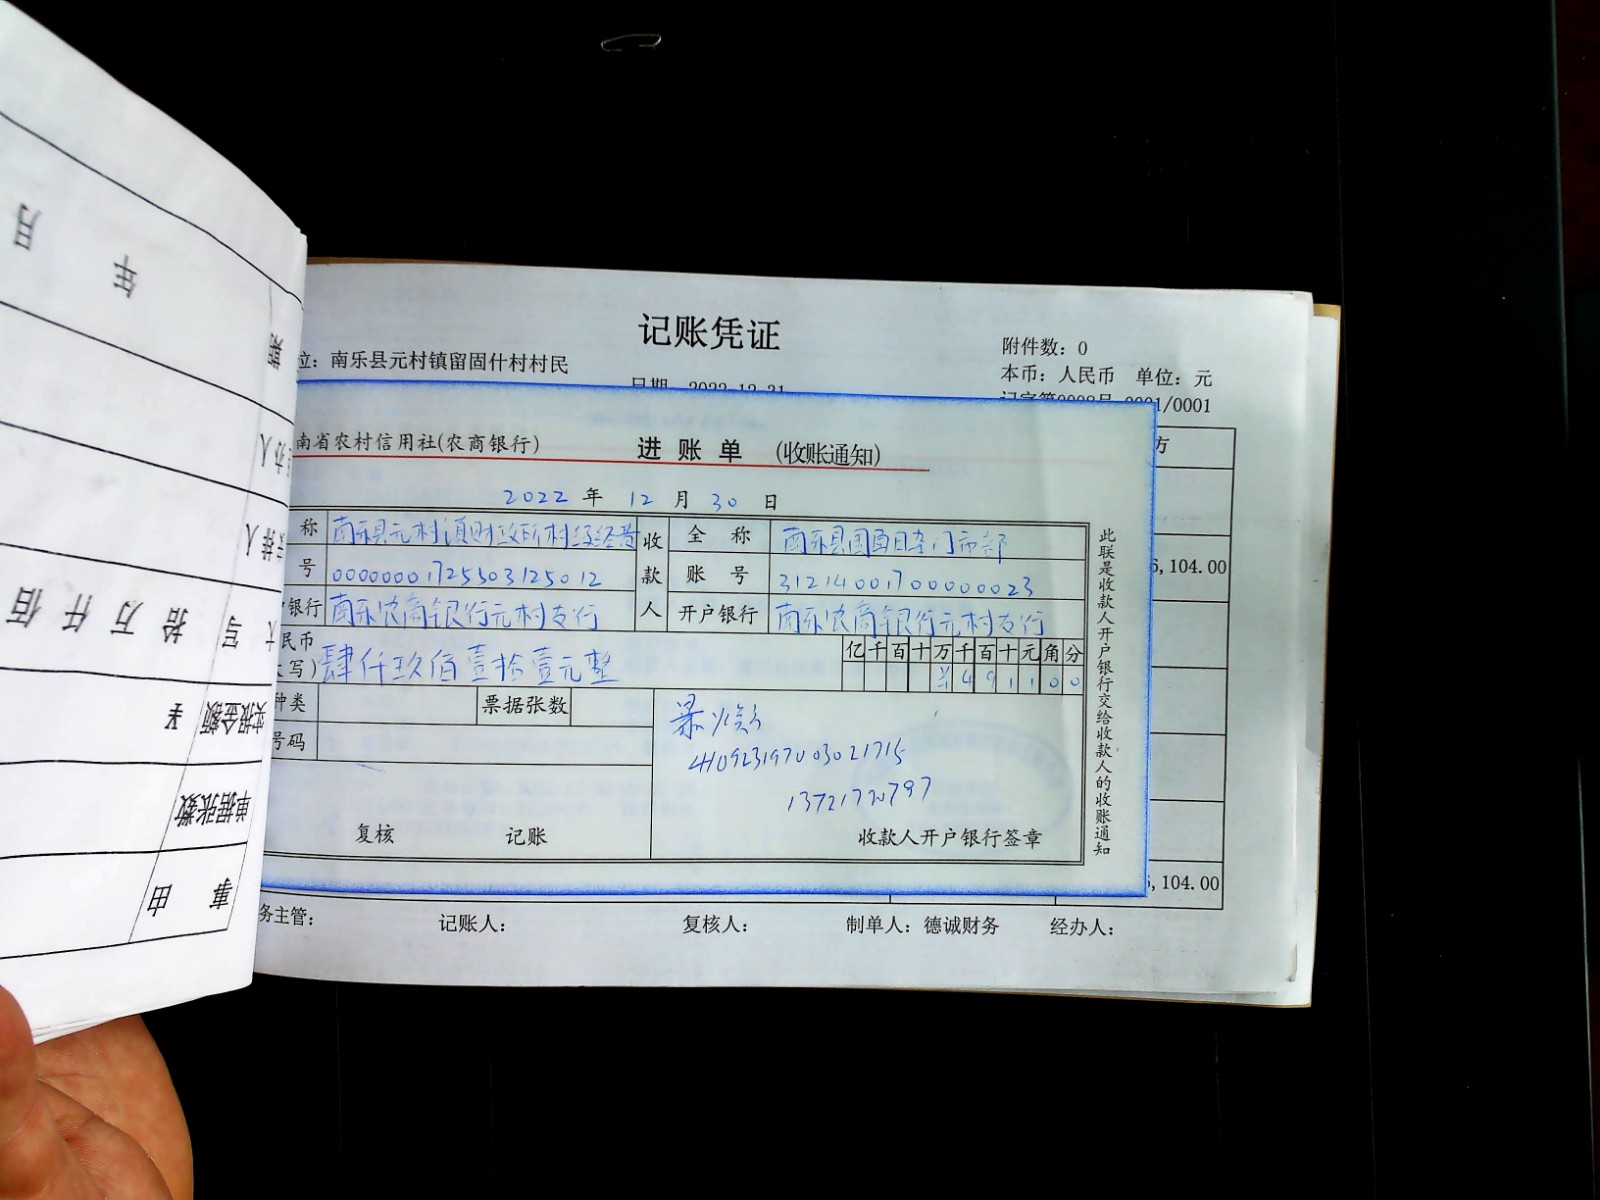 记账凭证
位：南乐县元村镇留固什村村民
附件数：0
本币：人民币 单位：元
日期 2022-12-31
记字第0008号 0001/0001
方
南省农村信用社(农商银行)
进账单 (收账通知)
2022 年 12 月 30 日
称 南乐县元村镇财政所村级经费
收款人
全称 南乐县国画日杂门市部
号 00000001725503125012
账号 31214001700000023
银行 南乐农商银行元村支行
开户银行 南乐农商银行元村支行
民币
写) 肆仟玖佰壹拾壹元整
亿千百十万千百十元角分
¥491100
种类
票据张数
号码
410923197003021715
13721720797
复核 记账
收款人开户银行签章
此联是收款人开户银行交给收款人的收账通知
6,104.00
6,104.00
务主管：
记账人：
复核人：
制单人：德诚财务
经办人：
年 月
大写 拾 万 仟 佰
实报金额 ¥
单据张数
事由